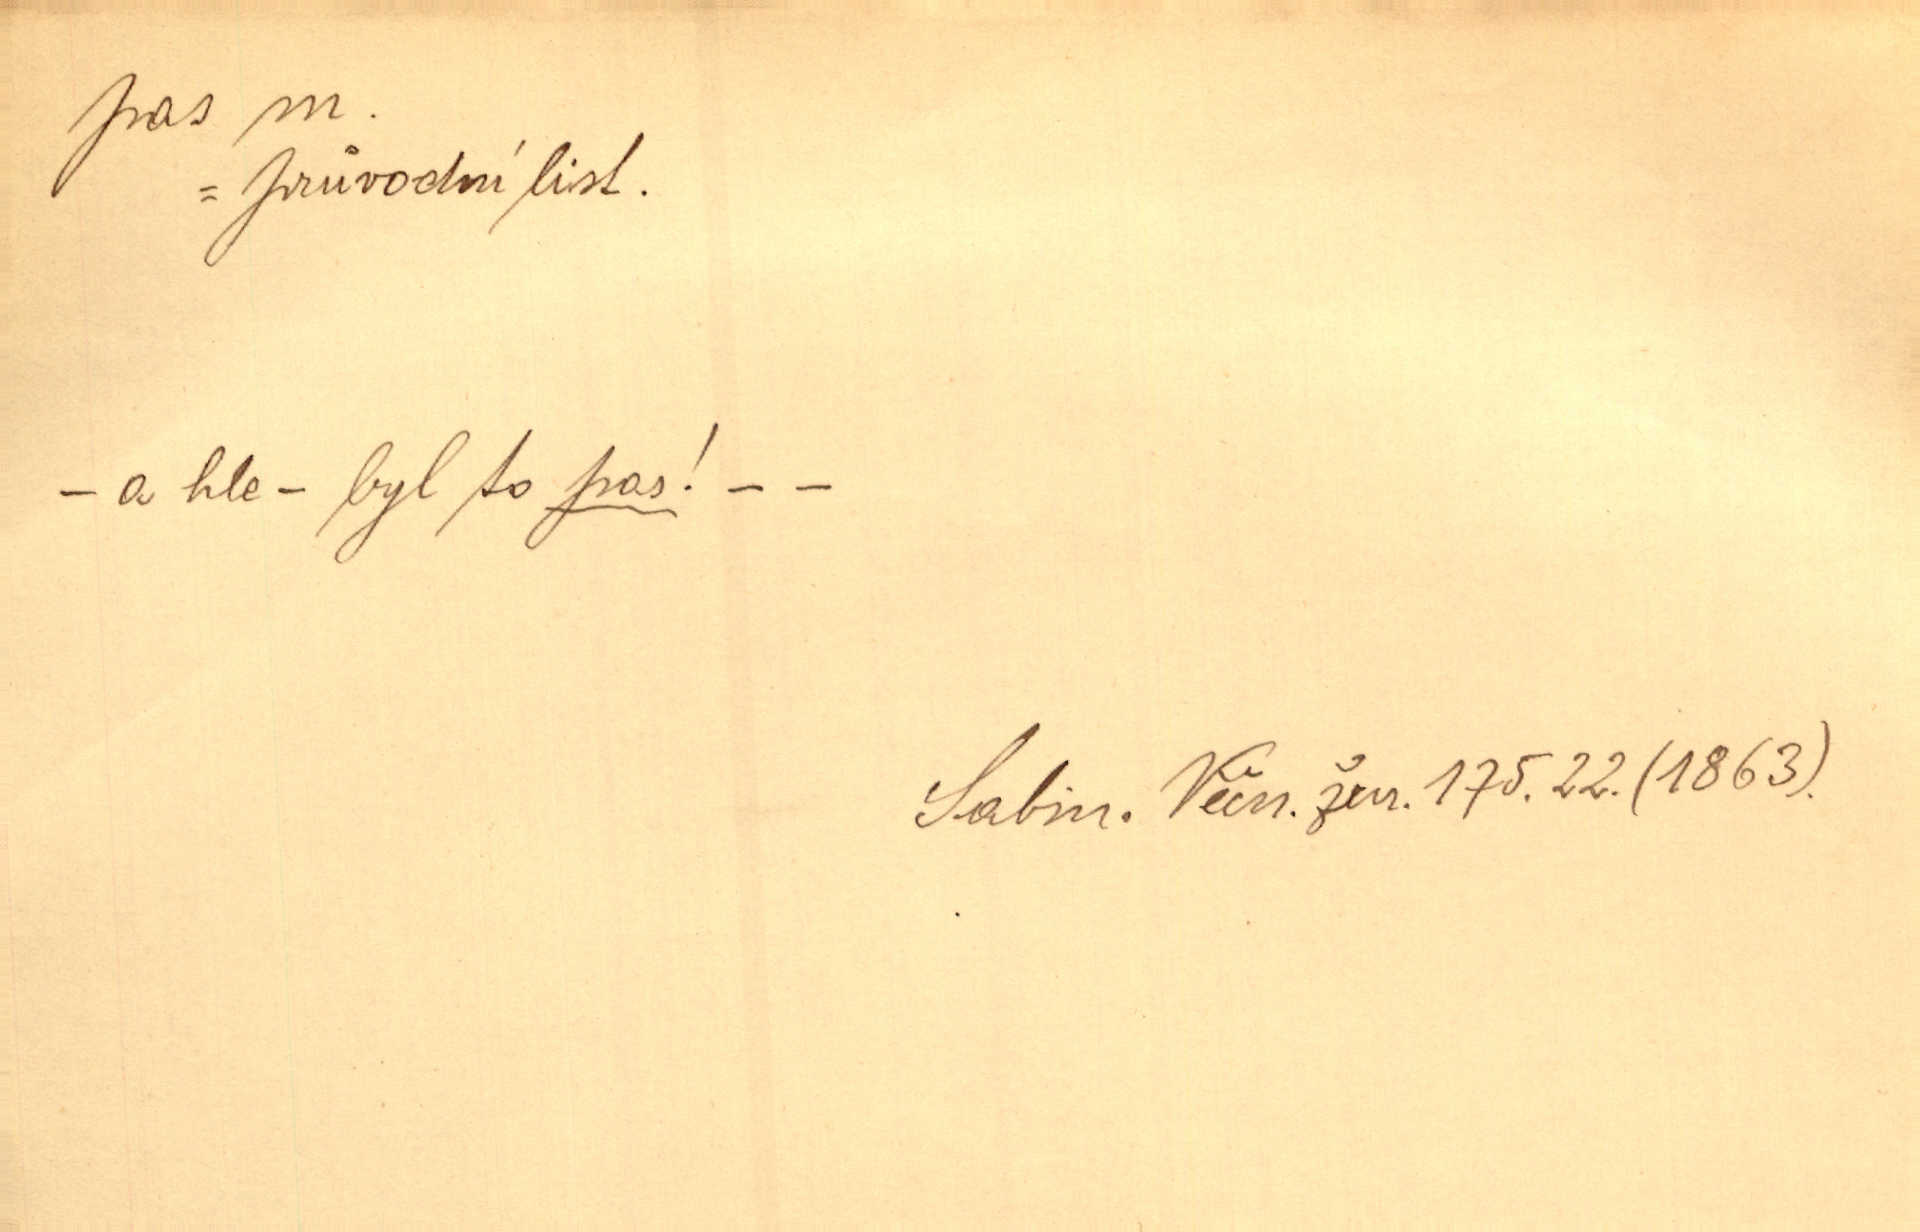 pas m.
= průvodní list.
– a hle – byl to pas! – –
Sabin. Věčn. žen. 175. 22. (1863).